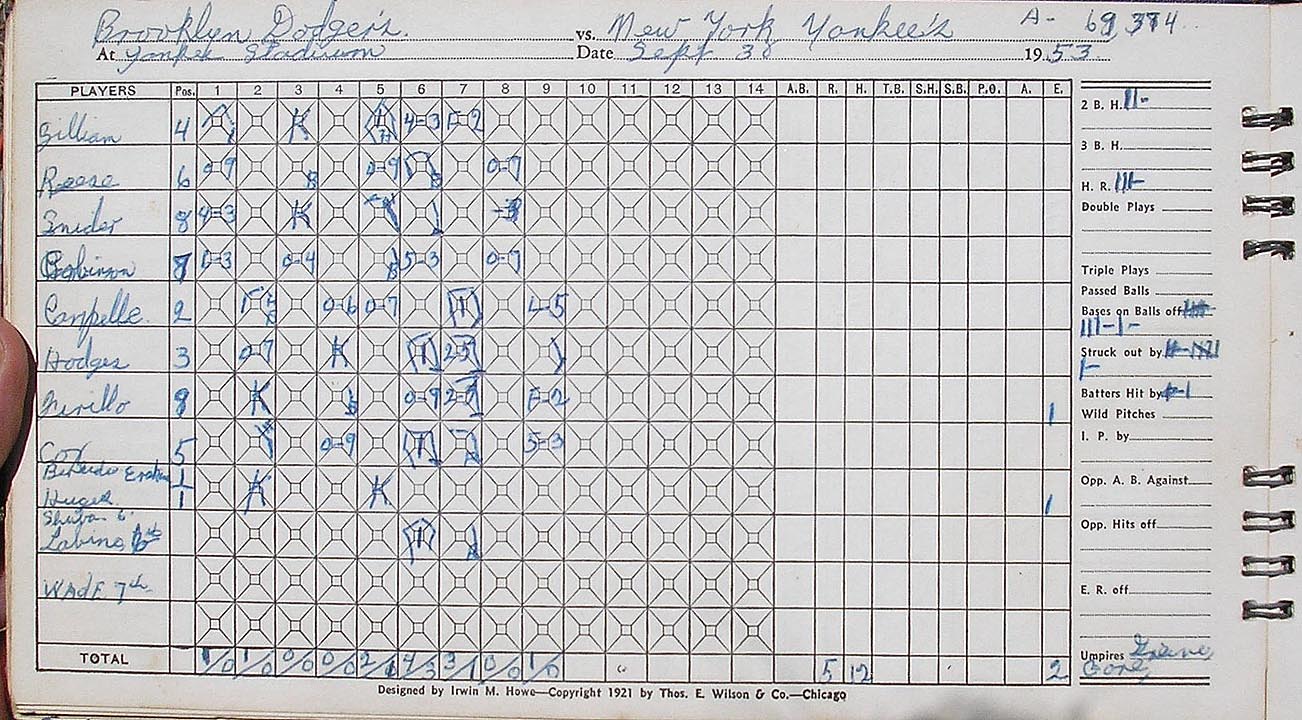 Brooklyn Dodger's vs. New York Yankee's A- 69,374
At Yankee Stadium Date Sept 30 1953
PLAYERS Pos. 1 2 3 4 5 6 7 8 9 10 11 12 13 14 A.B. R. H. T.B. S.H. S.B. P.O. A. E.
2 B. H. 11-
Gilliam 4 K 4-3 F-2
3 B. H.
Reese 6 0-9 0-9 0-7
H. R. 111-
Snider 8 4-3 K
Double Plays
Robinson 7 0-3 0-4 5-3 0-7
Triple Plays
Passed Balls
Campelle 2 0-6 0-7 L-5
Bases on Balls off
111-1-
Hodges 3 0-7 K
Struck out by
Furillo 9 K 0-9 F-2 1
Batters Hit by
Wild Pitches
Cox 5 0-9 5-3
I. P. by
Huges 1 K K 1
Opp. A. B. Against
Shuba 6
Labine
Opp. Hits off
WAdE 7th
E. R. off
TOTAL 1/0 1/0 0/0 0/0 2/1 4/3 3/1 0/0 1/0 5 12 2
Umpires
Gore
Designed by Irwin M. Howe—Copyright 1921 by Thos. E. Wilson & Co.—Chicago